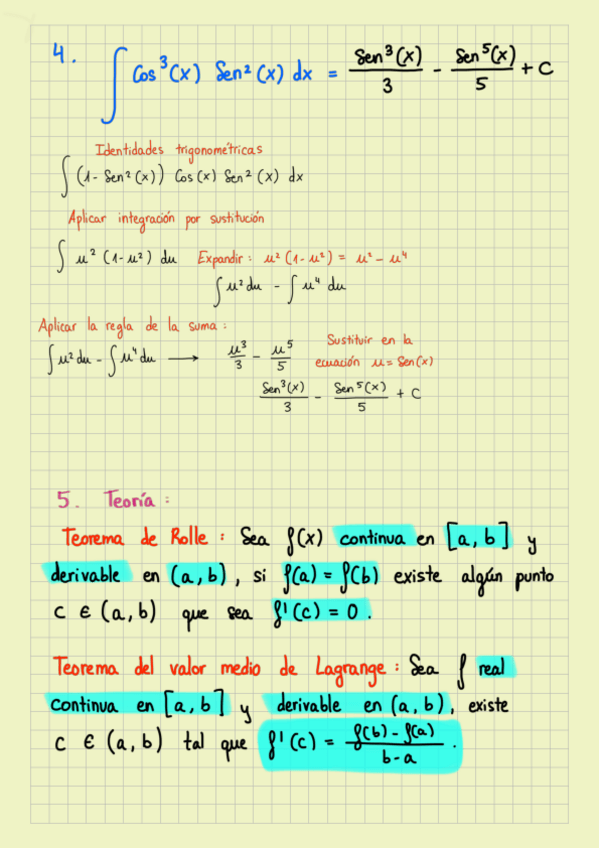 4. ∫ Cos³(x) Sen²(x) dx = Sen³(x)/3 - Sen⁵(x)/5 + C
Identidades trigonométricas
∫ (1- Sen²(x)) Cos(x) Sen²(x) dx
Aplicar integración por sustitución
∫ u² (1-u²) du Expandir: u² (1-u²) = u² - u⁴
∫ u² du - ∫ u⁴ du
Aplicar la regla de la suma:
∫ u² du - ∫ u⁴ du → u³/3 - u⁵/5 Sustituir en la
ecuación u = Sen(x)
Sen³(x)/3 - Sen⁵(x)/5 + C
5. Teoría:
Teorema de Rolle: Sea f(x) continua en [a,b] y
derivable en (a,b), si f(a) = f(b) existe algún punto
c ∈ (a,b) que sea f'(c) = 0.
Teorema del valor medio de Lagrange: Sea f real
continua en [a,b] y derivable en (a,b), existe
c ∈ (a,b) tal que f'(c) = f(b)-f(a)/b-a.